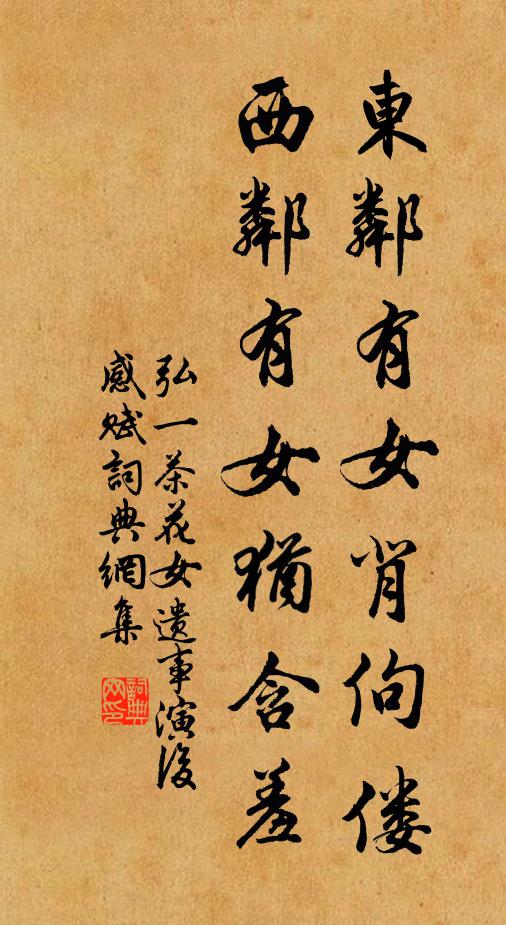 東鄰有女背佝僂
西鄰有女猶含羞
弘一茶花女遺事演後
感賦詞典網集
詞典网印